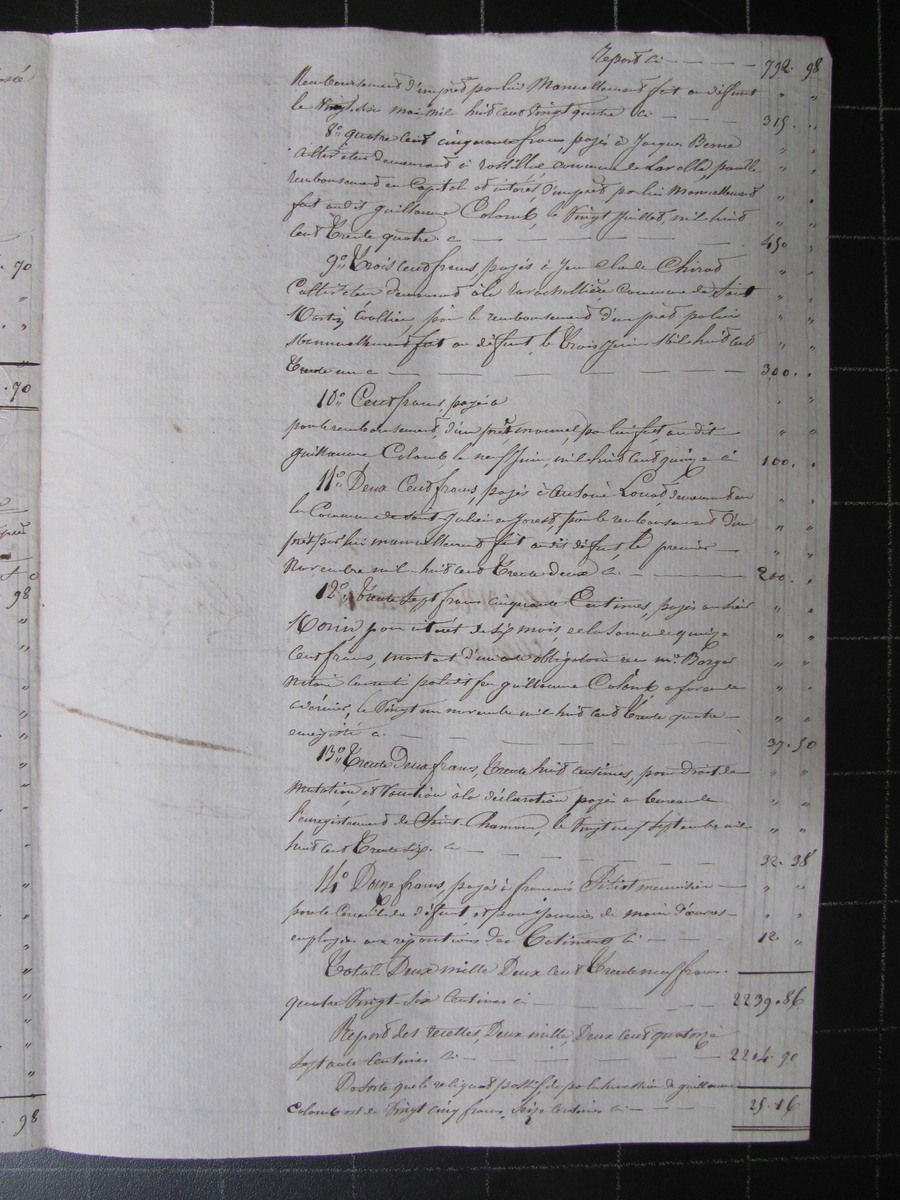 Report ci — — — — 792. 98
Remboursement d'un prêt par lui Manuellement fait au défunt " "
le Vingt six mai mil huit cent Vingt quatre ci — — — 315. "
8° quatre cent cinquante francs, payés à Jacques Berne " "
Cultivateur demeurant à commune de Lavalla, pour le " "
remboursement en Capital et intérêt, d'un prêt par lui Manuellement " "
fait au dit guillaume Colomb, le Vingt juillet, mil huit " "
cent Trente quatre. ci — — — — — 450 "
9° Trois cent francs, payés à Jean Claude Chirat " "
Cultivateur demeurant à la commune de Saint " "
Martin Coallieu pour le remboursement d'un prêt par lui " "
Manuellement fait au défunt, le Trois Juin Mil huit cent " "
Trente un ci — — — — — — 300. "
10° Cent francs, payés à " "
pour le remboursement, d'un prêt manuel, par lui fait, au dit " "
guillaume Colomb, le neuf Juin, mil huit cent quinze ci 100. "
11° Deux Cent francs, payés à Antoine Louat, demeurant en " "
la Commune de Saint Julien en Jarest, pour le remboursement d'un " "
prêt par lui manuellement fait au dit défunt, le premier — " "
Novembre mil huit cent Trente Deux ci — — 200. "
12° Trente Sept francs cinquante Centimes, payés au sieur " "
Morin, pour intérêt de six mois, de la somme de quinze " "
Cent francs, montant d'une obligation reçue Mr. Barger " "
notaire consenti par le dit feu guillaume Colomb, a " "
, le Vingt un novembre mil huit cent Trente quatre — " "
enregistré ci. — — — — — — 37. 50
13° Trente Deux francs, Trente huit centimes, pour Droit de " "
mutation et à la déclaration payés au bureau de " "
l'enregistrement de Saint Chamond, le Vingt neuf Septembre mil " "
huit cent Trente six. ci — — — — — 32. 38
14° Douze francs, payés à francois menuisier — " "
pour le Cercueil du défunt, et pour Journées de main d'œuvre — " "
employées aux réparations des Batiments ci — — — 12. "
Total Deux mille Deux cent Trente neuf francs.
quatre Vingt-six Centimes ci — — — 2239. 86
Report des recettes, Deux mille, Deux cent quatorze
septante Centimes ci — — — — — 2214. 70
De sorte que le reliquat passif de la succession de guillaume
Colomb est de Vingt cinq francs, seize Centimes ci — — — 25. 16
. 70
. 70
98
98